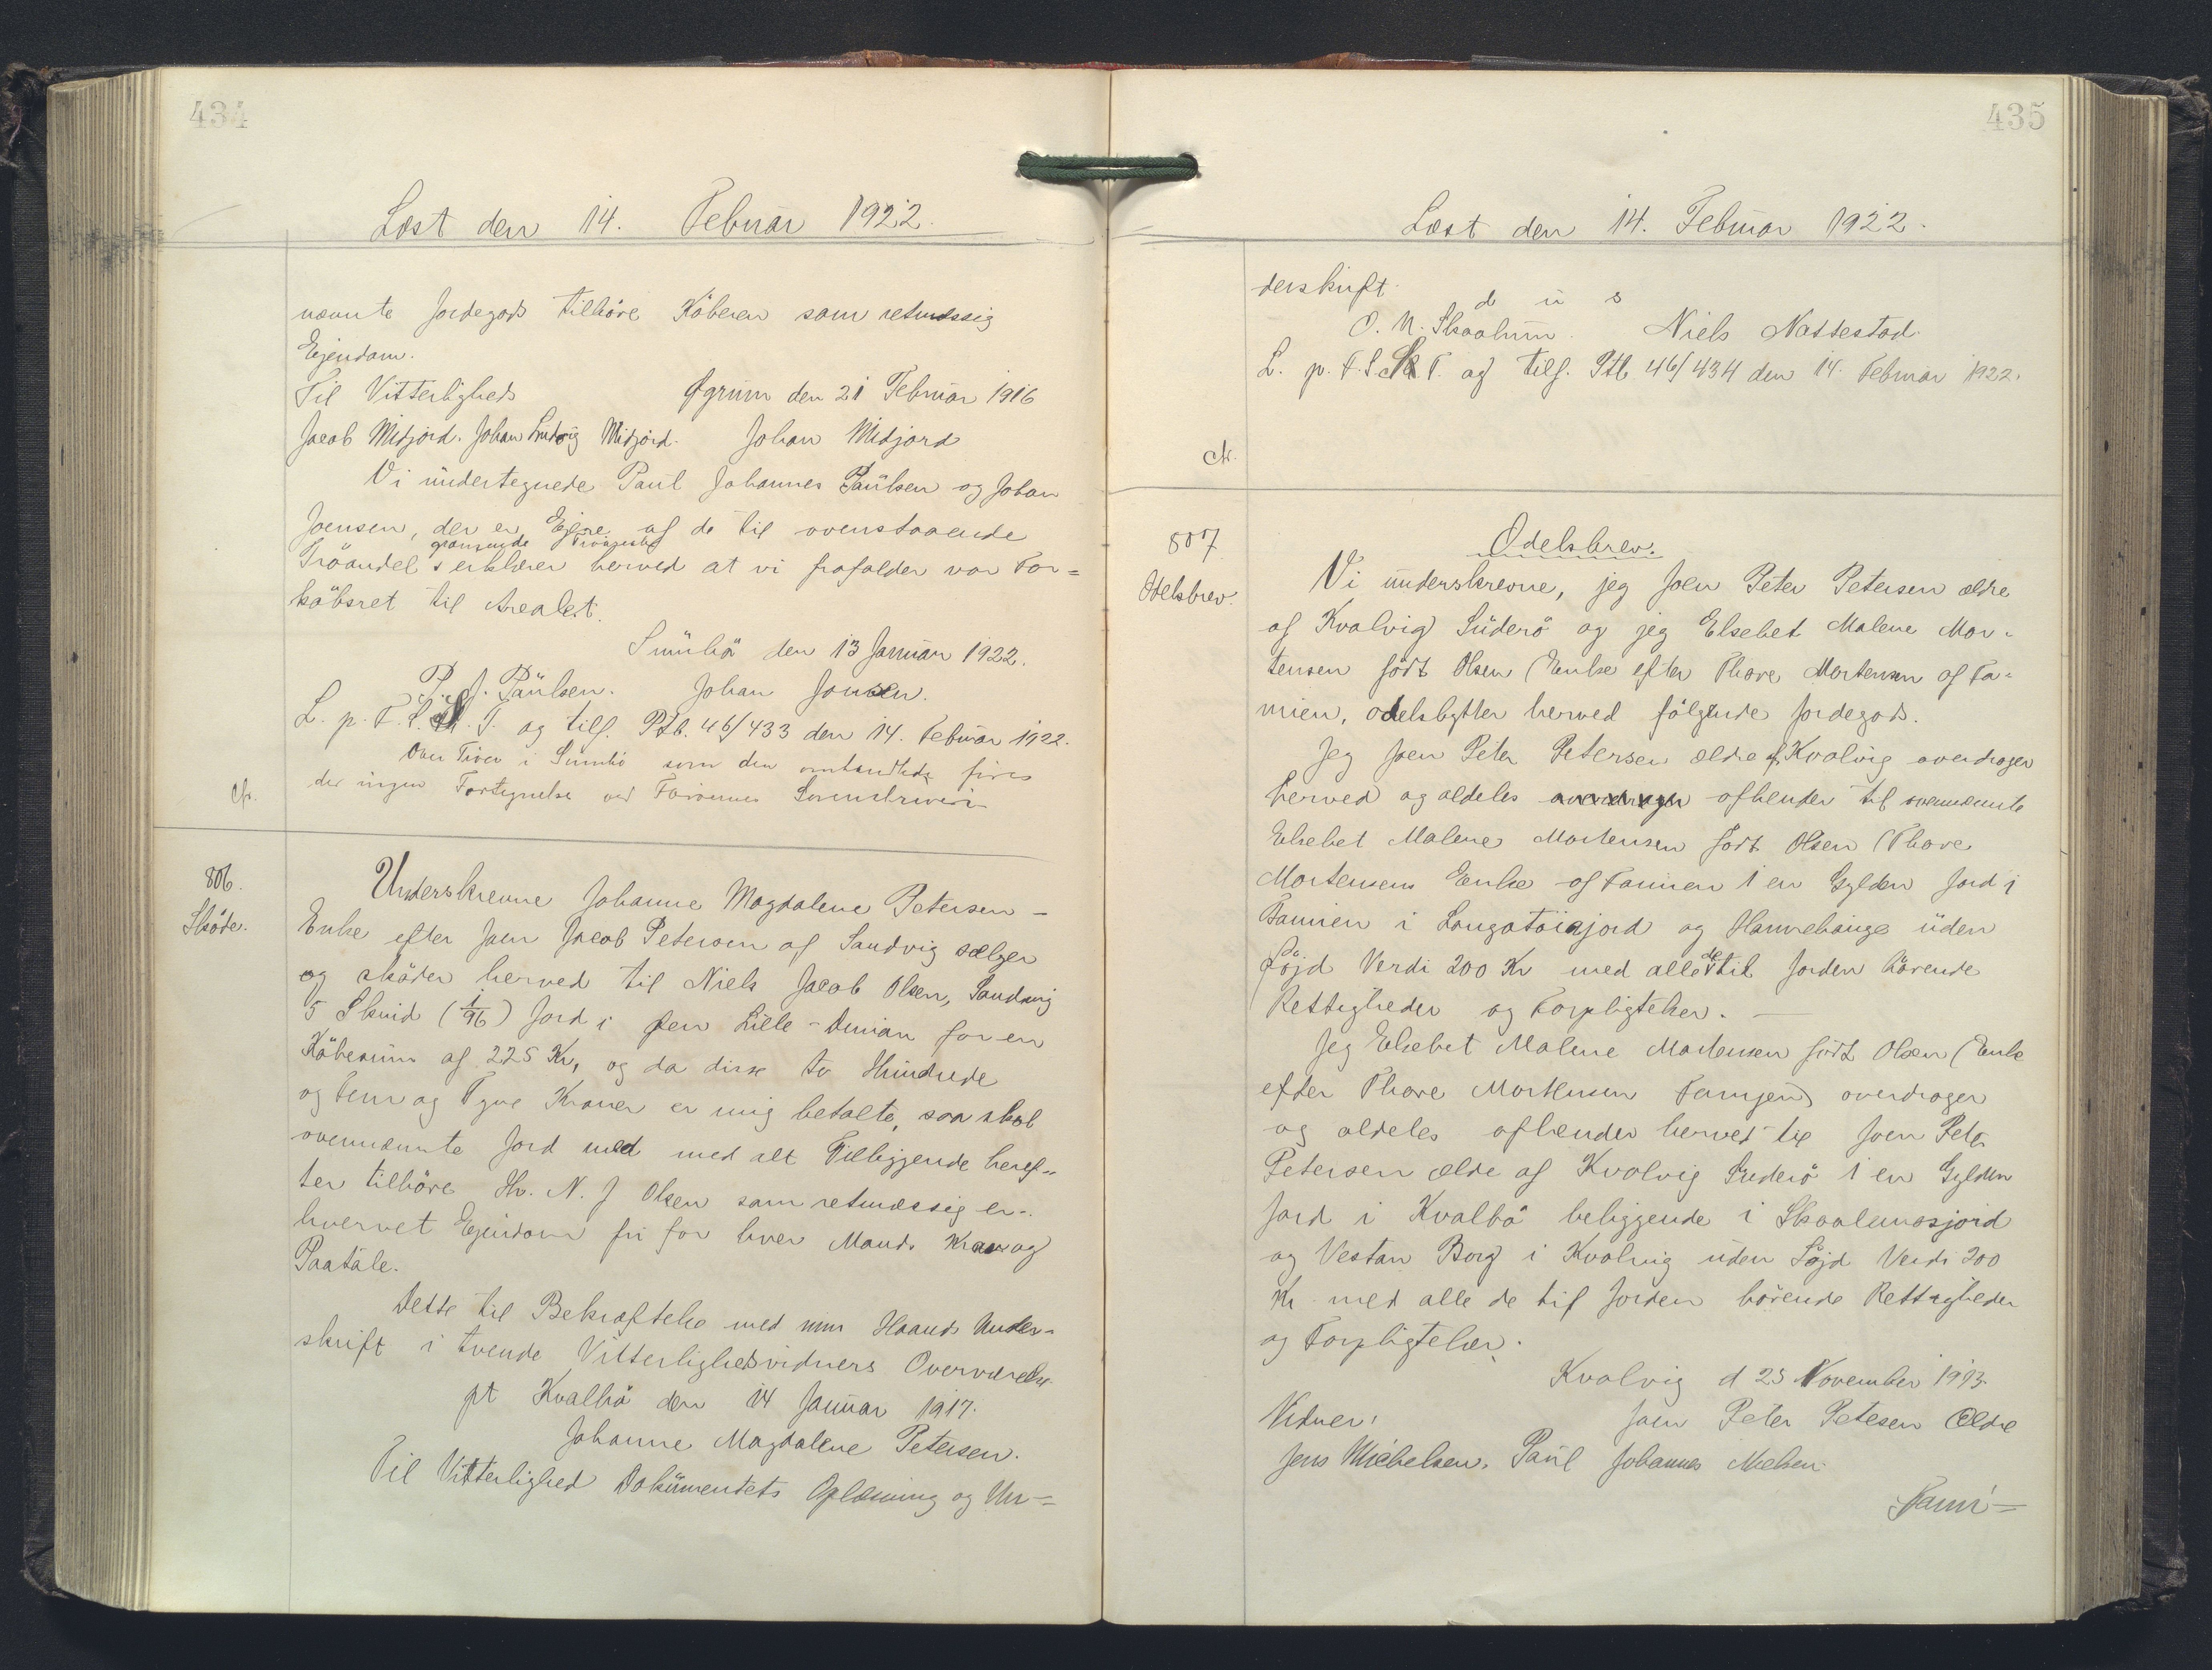 434
Læst den 14. Februar 1922.
nævnte Jordegods tilhöre Köberen som retmæssig
Ejendom.
Til Vitterligheds Øgrum den 21 Februar 1916
Jacob Midjord. Johan Ludvig Midjord. Johan Midjord
Vi undertegnede Paul Johannes Paulsen og Johan
Joensen, der er Ejere af de til ovenstaaende
grænsende
Tröandel's erklærer herved at vi frafalder vor For=
köbsret til Arealet.
Sumbö den 13 Januar 1922.
P. J. Paulsen. Johan Jonsen.
L. p. F. S. Sk. T. og tilf. Ptb. 46/433 den 14. Februar 1922.
Over Tröer i Sumbö som den omhandlede föres
der ingen Fortegnelse ved Færöernes Sorenskriveri
Ck.
806.
Sköde.
Underskrevne Johanne Magdalene Petersen -
Enke efter Joen Jacob Petersen af Sandvig sælger
og sköder herved til Niels Jacob Olsen, Sandvig
5 Skind (1/96) Jord i den Lille-Dimon for en
Köbesum af 225 Kr, og da disse to Hundrede
og Fem og Tyve Kroner er mig betalte, saa skal
ovennævnte Jord med med alt Tilliggende heref=
ter tilhöre Hr. N. J Olsen som retmæssig er-
hvervet Ejendom fri for hver Mands Krav og
Paatale.
Dette til Bekræftelse med min Haands Under-
skrift i tvende Vitterlighedsvidners Overværelse
pt Kvalbö den 14 Januar 1917.
Johanne Magdalene Petersen.
Til Vitterlighed Dokumentets Oplæsning og Un=
435
Læst den 14. Februar 1922.
derskrift.
d u s
O. N. Skaalum. Niels Nattestad.
L. p. F. S. Sk. T. og tilf. Ptb 46/434 den 14. Februar 1922.
Ck.
807
Odelsbrev.
Odelsbrev.
Vi underskrevne, jeg Joen Peter Petersen ældre
af Kvalvig Suderö og jeg Elsebet Malene Mor-
tensen födt Olsen (Enke efter Thore Mortensen af Fa-
mien, odelsbytter herved fölgende Jordegods.
Jeg Joen Peter Petersen ældre af Kvalvig overdrager
herved og aldeles overdrager afhender til ovennævnte
Elsebet Malene Mortensen födt Olsen (Thore
Mortensens Enke af Famien 1 en Gylden Jord i
Famien i Langatoigjord og Hannehauge uden
Föjd Verdi 200 Kr med alle de til Jorden hörende
Rettigheder og Forpligtelser.
Jeg Elsebet Malene Mortensen födt Olsen (Enke
efter Thore Mortensen Famjen) overdrager
og aldeles afhender herved til Joen Peter
Petersen ælde af Kvalvig Suderö 1 en Gylden
Jord i Kvalbö beliggende i Skaalumosjord
og Vestan Borg i Kvalvig uden Föjd Verdi 200
Kr med alle de til Jorden hörende Rettigheder
og Forpligtelser.
Kvalvig d 25 November 1913.
Vidner: Joen Peter Petesen Ældre
Jens Michelsen. Paul Johannes Nielsen
Fami=